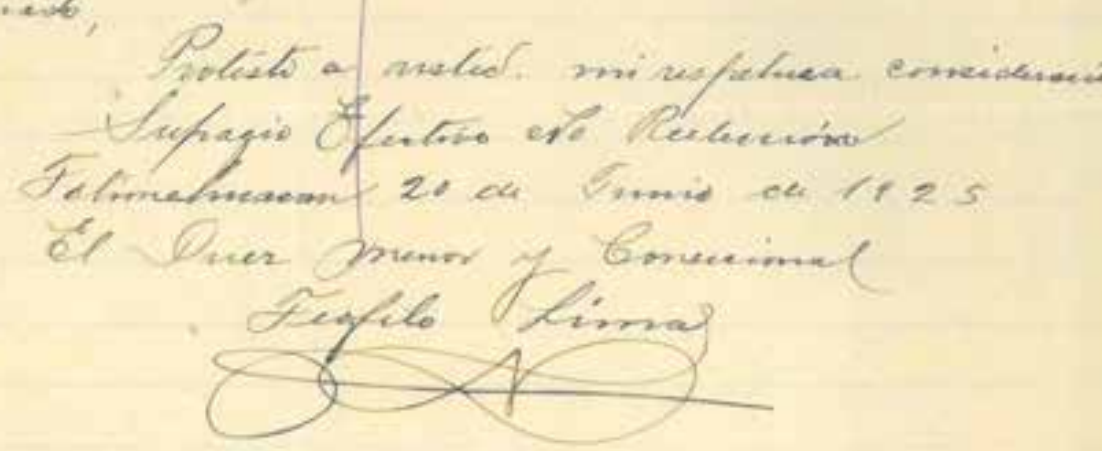 Protesto a usted. mi respetuosa consideración
Sufragio Efectivo No Reelección
20 de Junio de 1925
El Juez Menor y Correccional
Teofilo Lima